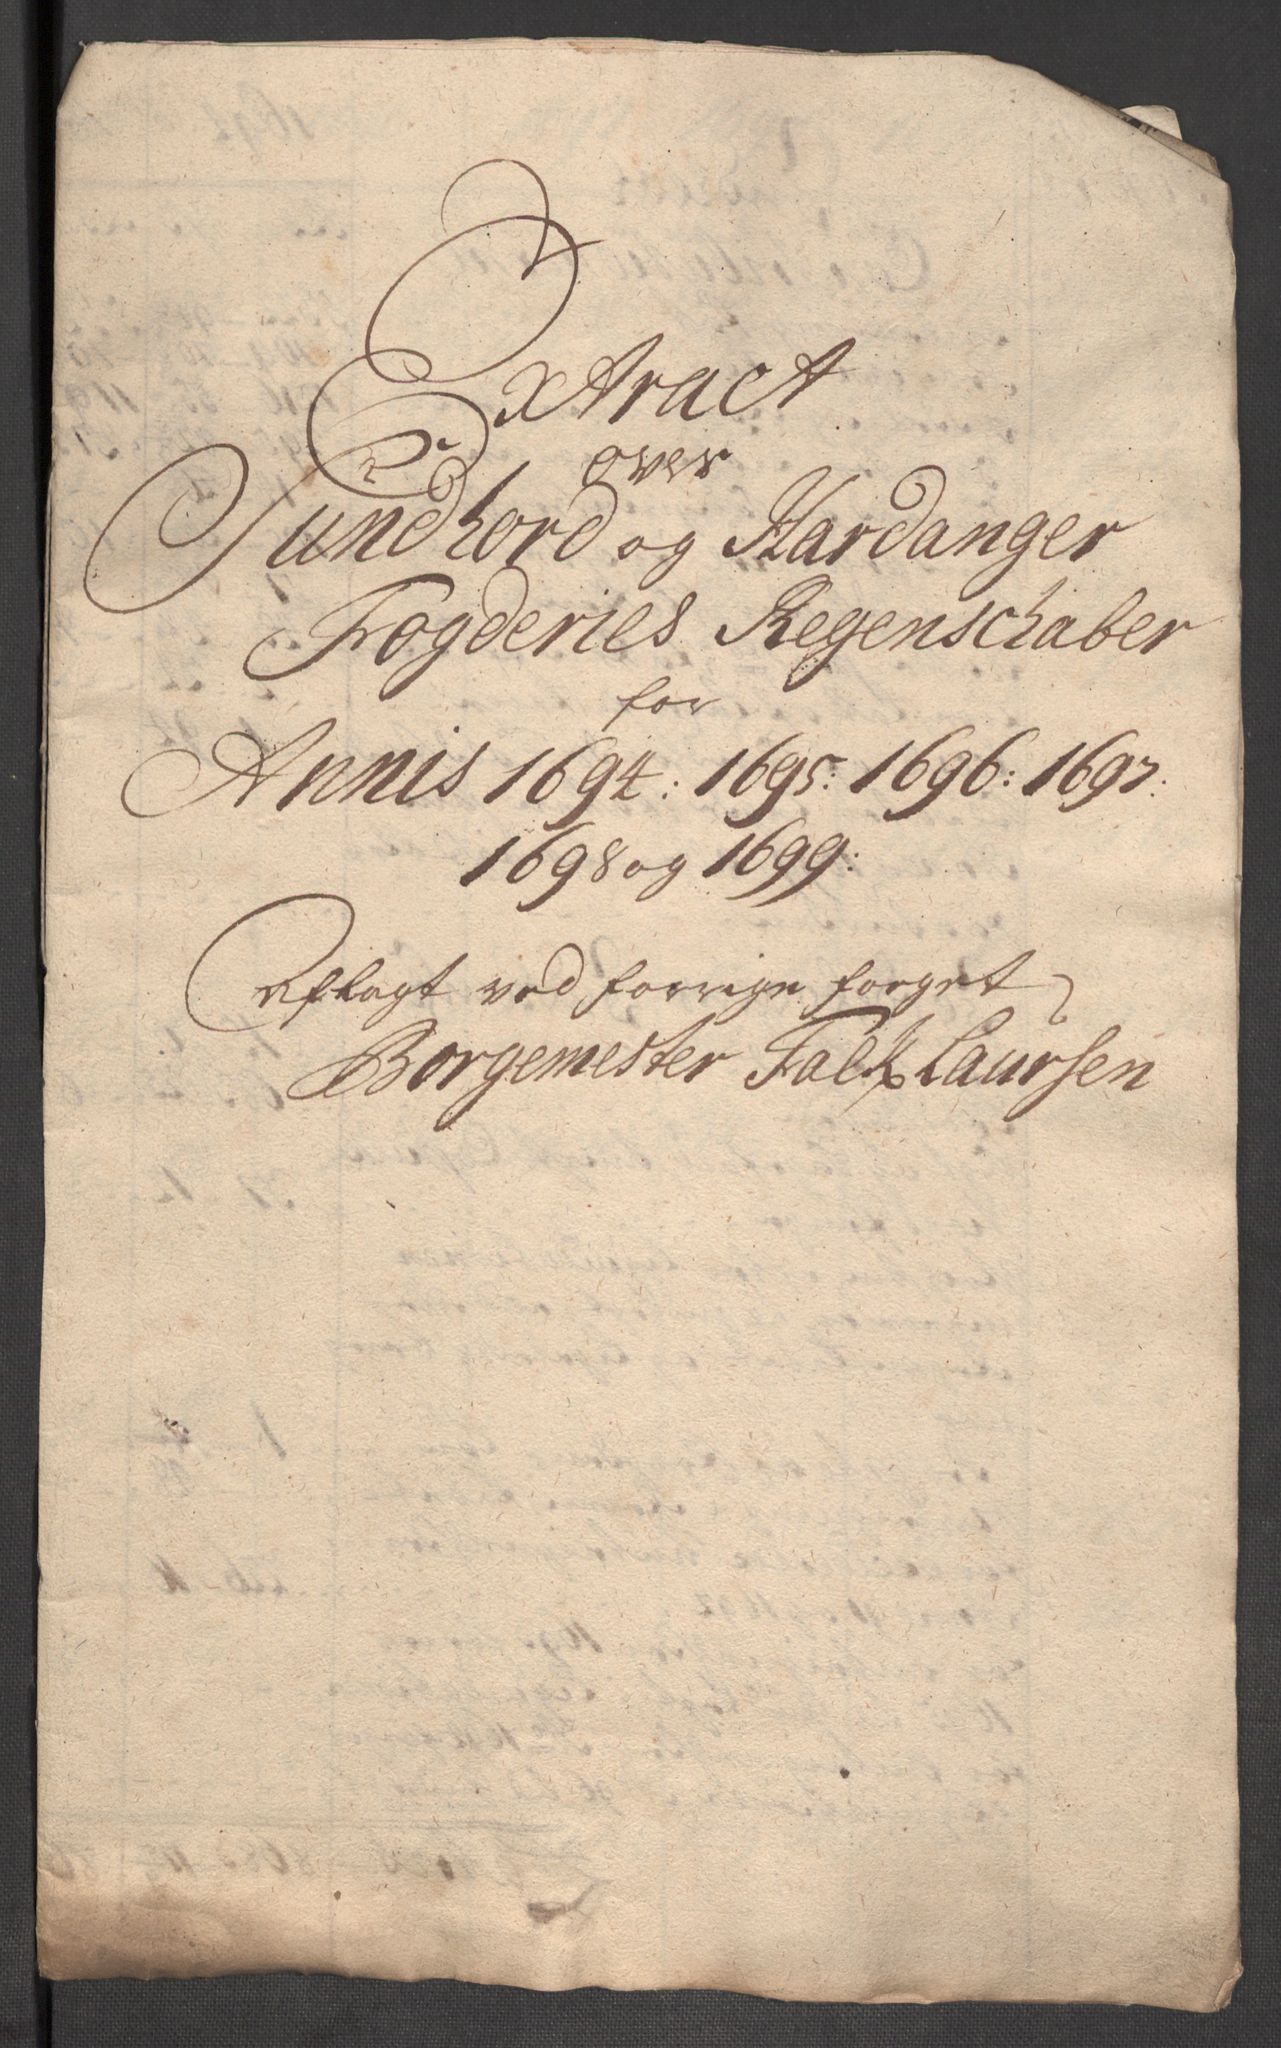 Extract
over
Sundhord og Hardanger
Fogderies Regenschaber
for
Annis 1694: 1695: 1696: 1697:
1698 og 1699:
Aflagt ved forrige foeget
Borgemester Falk Laursen